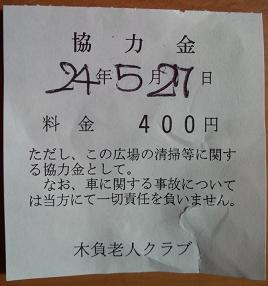 協力金
24年5月27日
料金 400円
ただし、この広場の清掃等に関す
る協力金として。
なお、車に関する事故について
は当方にて一切責任を負いません。
木負老人クラブ